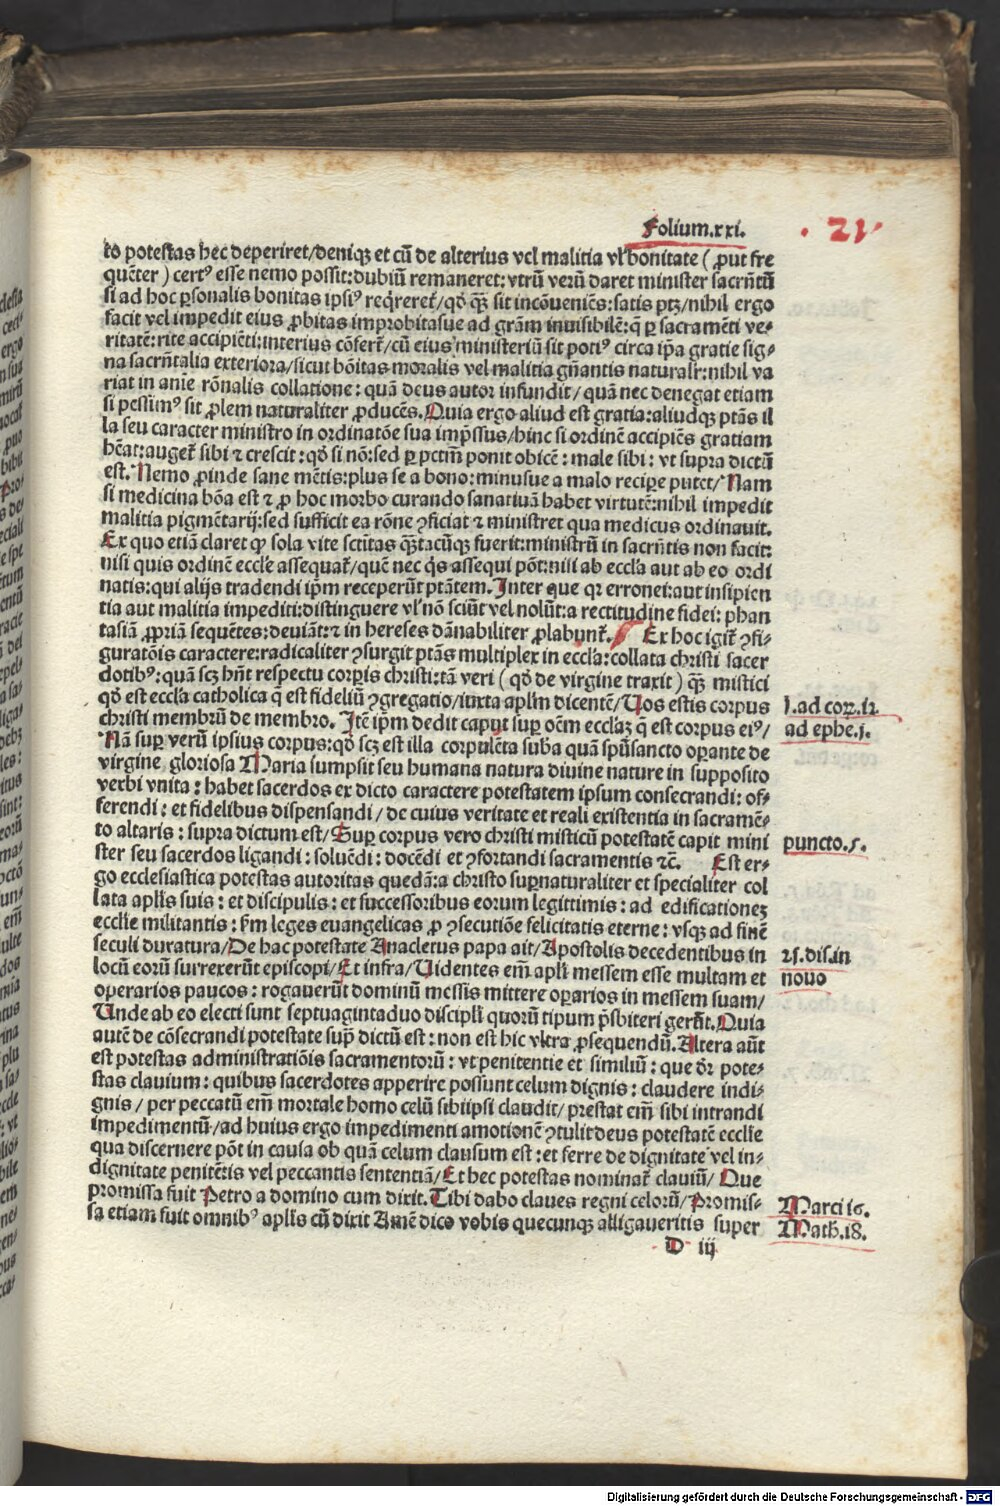 Folium.xxi. 21
to potestas hec deperiret/deniqꝫ et cū de alterius vel malitia vl̓ bonitate ( ꝓut fre
quēter ) certꝰ esse nemo possit: dubiū remaneret: vtrū verū daret minister sacrn̄tū
si ad hoc ꝑsonalis bonitas ipsiꝰ reqreret̄/ qd̓ qꝫ sit incōueniēs: satis ptꝫ/ nihil ergo
facit vel impedit eius ꝓbitas improbitasue ad grām inuisibilē: q̄ ꝑ sacramēti ve⸗
ritatē: rite accipiēti: interius cōfert̄/ cū eius ministeriū sit potiꝰ circa ip̄a gratie sig⸗
na sacrn̄talia exteriora/ sicut bōitas moralis vel malitia gn̄antis naturalr̄: nihil va
riat in anīe rōnalis collatione: quā deus autor infundit/ quā nec denegat etiam
si pessimꝰ sit ꝓlem naturaliter ꝓducēs. Quia ergo aliud est gratia: aliudqꝫ ptās il
la seu caracter ministro in ordinatōe sua imp̄ssus/ hinc si ordinē accipiēs gratiam
hēat: auget̄ sibi ⁊ crescit: qd̓ si nō: sed ꝑ pctm̄ ponit obicē: male sibi: vt supra dictū
est. Nemo ꝓinde sane mētis: plus se a bono: minusue a malo reciꝑe putet/ Nam
si medicina bōa est ⁊ ꝓ hoc morbo curando sanatiuā habet virtutē: nihil impedit
malitia pigmētarij: sed sufficit ea rōne ꝯficiat ⁊ ministret qua medicus ordinauit.
Ex quo etiā claret qꝙ sola vite sctītas qꝫtacūqꝫ fuerit: ministrū in sacrn̄tis non facit:
nisi quis ordinē eccle assequat̄/ quē nec qs assequi pōt: nisi ab eccla aut ab eo ordi
natis: qui alijs tradendi ip̄m receperūt ptātem. Inter que qr erronei: aut insipien
tia aut malitia impediti: distinguere vl̓ nō sciūt vel nolūt: a rectitudine fidei: phan
tasiā ꝓpriā sequētes: deuiāt: ⁊ in hereses dānabiliter ꝓlabunt̄. Ex hoc igit̄ ꝯfi⸗
guratōis caractere: radicaliter ꝯsurgit ptās multiplex in eccla: collata christi sacer
dotibꝰ: quā scꝫ hn̄t respectu corꝑis christi: tā veri ( qd̓ de virgine traxit ) qꝫ mistici
qd̓ est eccla catholica q̄ est fideliū ꝯgregatio/ iuxta aplm̄ dicentē/ Uos estis corpus
christi membrū de membro. Itē ip̄m dedit caput suꝑ oēm ecclaꝫ q̄ est corpus eiꝰ/
Nā suꝑ verū ipsius corpus: qd̓ scꝫ est illa corpulēta suba quā spūsancto oꝑante de
virgine gloriosa Maria sumpsit seu humana natura diuine nature in supposito
verbi vnita: habet sacerdos ex dicto caractere potestatem ipsum consecrandi: of⸗
ferendi: et fidelibus dispensandi/ de cuius veritate et reali existentia in sacramē⸗
to altaris: supra dictum est/ Suꝑ corpus vero christi misticū potestatē capit mini
ster seu sacerdos ligandi: soluēdi: docēdi et ꝯfortandi sacramentis ⁊c. Est er⸗
go ecclesiastica potestas autoritas quedā: a christo suꝑnaturaliter et specialiter col
lata aplīs suis: et discipulis: et successoribus eorum legittimis: ad edificationeꝫ
ecclie militantis: ẜm leges euangelicas ꝓ ꝯsecutiōe felicitatis eterne: vsqꝫ ad finē
seculi duratura/ De hac potestate Anacletus papa ait/ Apostolis decedentibus in
locū eorū surrexerūt episcopi/ Et infra/ Uidentes em̄ apli messem esse multam et
operarios paucos: rogauerūt dominū messis mittere oꝑarios in messem suam/
Unde ab eo electi sunt septuagintaduo discipli quorū tipum p̄sbiteri gerūt. Quia
autē de cōsecrandi potestate sup̄ dictū est: non est hic vltra ꝓsequendū. Altera aūt
est potestas administratiōis sacramentorū: vt penitentie et similiū: que dr̄ pote⸗
stas clauium: quibus sacerdotes apperire possunt celum dignis: claudere indi⸗
gnis/ per peccatū em̄ mortale homo celū sibiipsi claudit/ prestat em̄ sibi intrandi
impedimentū/ ad huius ergo impedimenti amotionē ꝯtulit deus potestatē ecclie
qua discernere pōt in causa ob quā celum clausum est: et ferre de dignitate vel in⸗
dignitate penitētis vel peccantis sententiā/ Et hec potestas nominat̄ clauiū/ Que
promissa fuit Petro a domino cum dixit. Tibi dabo claues regni celorū/ Promis⸗
sa etiam fuit omnibꝰ aplis cū dixit Amē dico vobis quecunqꝫ alligaueritis super
D iij
I. ad coꝝ. 12
ad ephe. j.
puncto. 5.
21. dis. in
nouo
Marci 16.
Math. 18.
Digitalisierung gefördert durch die Deutsche Forschungsgemeinschaft - DFG